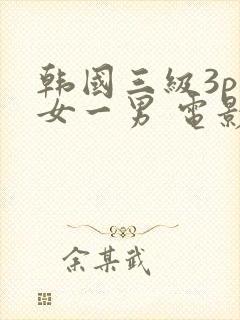 韩國三級3p
女一男 電影
余某武